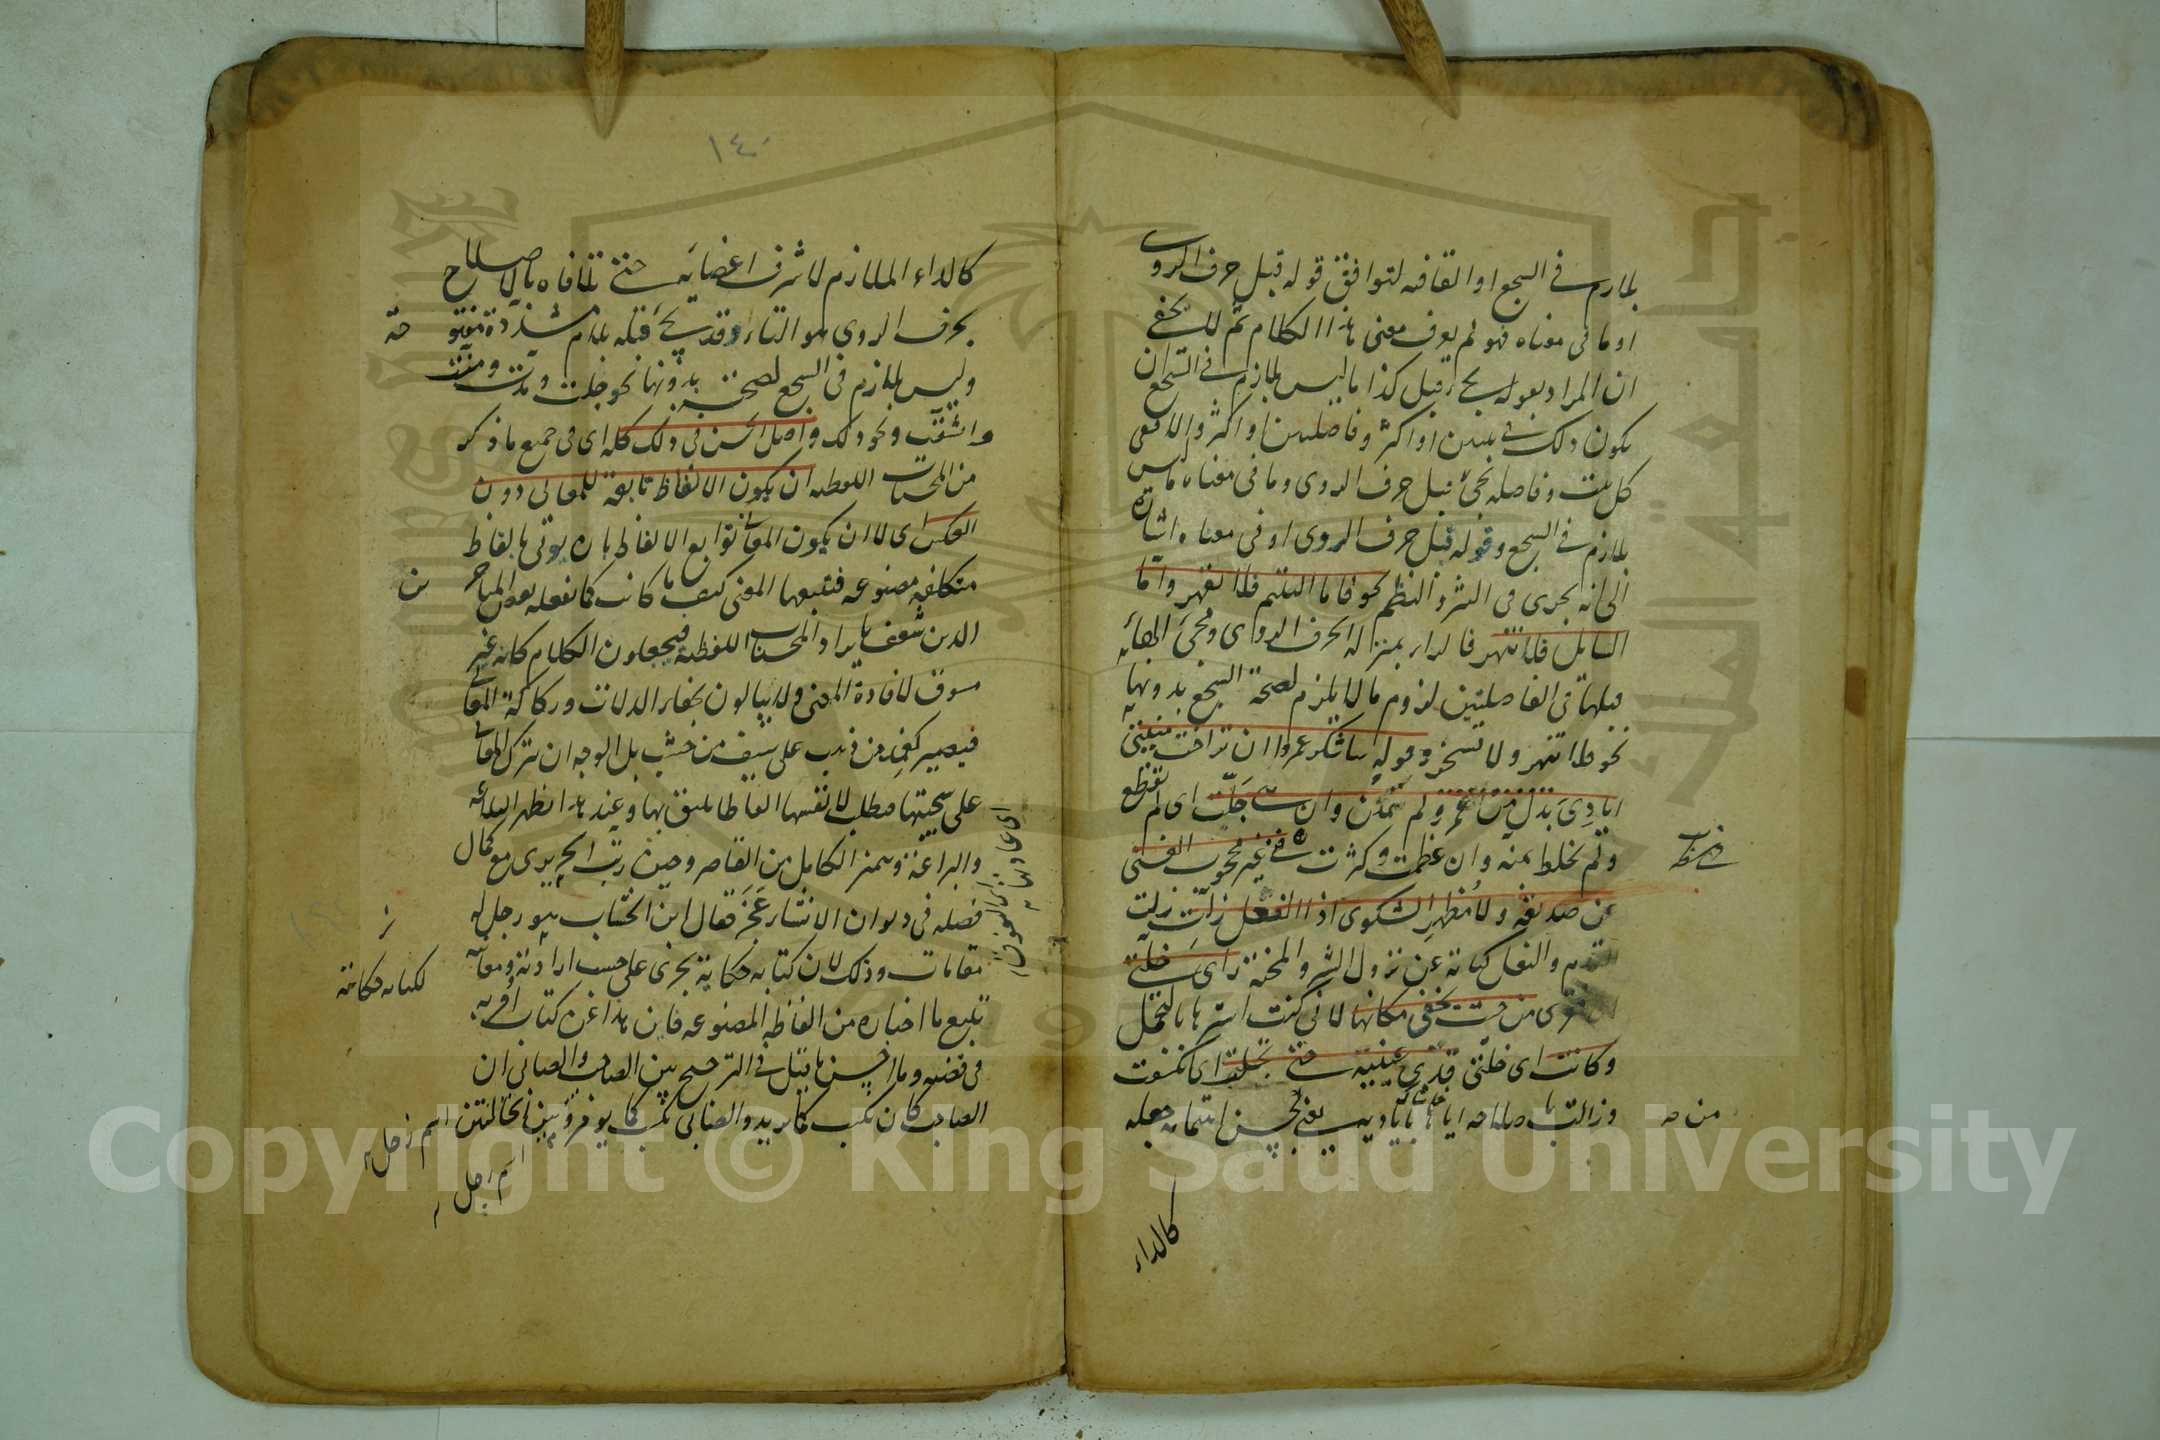 بلازم في السجع او القافيه لتوافق قوله قبل حرف الروي
او ما في معناه فهو لم يعرف معنى هذا الكلام ثم لا يخفى
ان المراد بقوله يجيء قبل كذا ما ليس بلازم في السجع ان
يكون ذلك في بيتين او اكثر و فاصلتين او اكثر والا ففي
كل بيت وفاصله يجئ قبل حرف الروي وما في معناه ما ليس
بلازم في السجع وقوله قبل حرف الروي او في معناه اشاره
الى انه يجري في النثر والنظم نحو فاما اليتيم فلا تقهر واما
السايل فلا تنهر فالراء بمنزله الحرف الروي ومجئ الهاء
قبلها في الفاصلتين لزوم ما لا يلزم لصحة السجع بدونها
نحو فلا تنهر ولا تسخر وقوله ساشكر عمروا ان تراخت منيتي
ايادي بدل من عمرو لم تمنن وان هي جلت اى لم تقطع
ولم يخلط بمنه وان عظمت وكثرت فتى غير محجوب الغنى
عن صديقه ولا مظهر الشكوى اذا النعل زلت زلت
القدم والنعل كناية عن نزول الشر والمحنة راى خلتي
من حيث يخفى مكانها لاني كنت استرها بالتجمل
وكانت اى خلتي قذى عينيه حتى تجلت اى انكشفت
وزالت باصلاحه اياها باياديه يعني من حسن اهتمامه جعله
من حه
كالداء
١٤٠
كالداء الملازم لاشرف اعضايه حتى تلافاه بالاصلاح
بحرف الروي هو التاء وقد يجئ قبله بلام مشددة مفتو
حة
وليس بلازم في السجع لصحته بدونها نحو جلت ومدت ومنت
وانشقت ونحو ذلك واصل الحسن في ذلك كله اى في جميع ما ذكر
من المحسنات اللفظيه ان يكون الالفاظ تابعة للمعاني دون
العكس اى لا ان يكون المعاني توابع الالفاظ بان يوتى بالفاظ
متكلفه مصنوعه فتتبعها المعنى كيف ما كانت كما يفعله بعض المتاخر
ين
الذين شعف بايراد المحسنات اللفظيه فيجعلون الكلام كانه غير
مسوق لافادة المعنى ولا يبالون بخفاء الدلالات وركاكة المعاني
فيصير كغمد من ذهب على سيف من خشب بل الوجه ان تترك المعاني
على سجيتها فتطلب لانفسها الفاظا تليق بها وعند هذا تظهر البلاغه
والبراعة ويتميز الكامل من القاصر وحين رتب الحريري مع كمال
فضله في ديوان الانشاء عجز فقال ابن الخشاب هو رجل له
مقامات وذلك لان كتابه حكاية تجري على حسب ارادته ومعانيه
تتبع ما اختاره من الفاظه المصنوعه فاين هذا عن كتاب امر به
في قضيه وما احسن ما قيل في الترجيح بين الصاحب والصابي ان
الصاحب كان يكتب كما يريد والصابي يكتب كما يومر وبين الحالتين